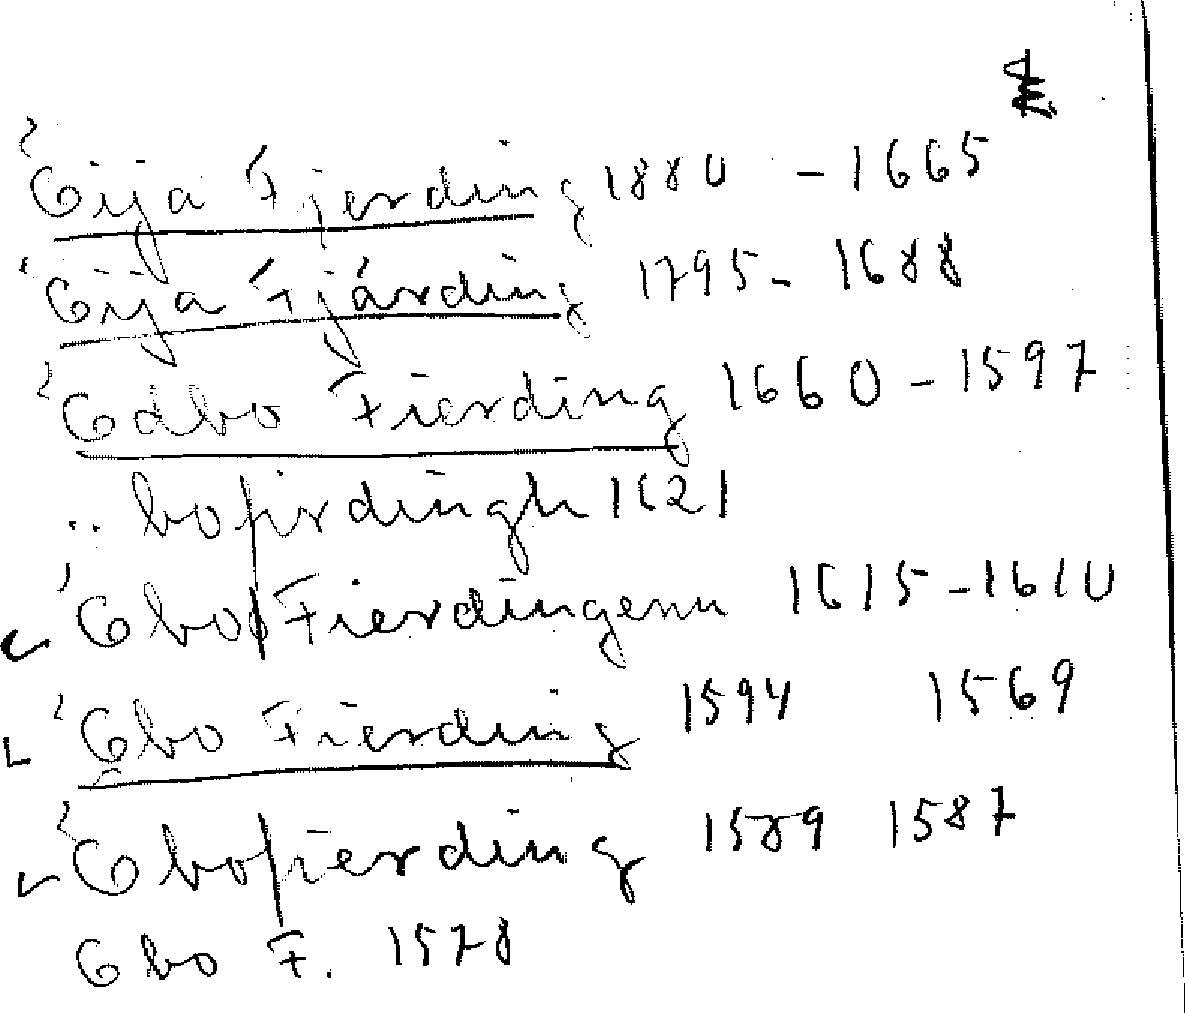 Eija Fjerding 1880 - 1665
Eija Fjärding 1795 - 1688
Edbo Fierding 1660 - 1597
.. bofirdingh 1621
Ebo Fierdingenn 1615 - 1610
Ebo Fierding 1594 1569
Ebofierding 1589 1587
Ebo F. 1578